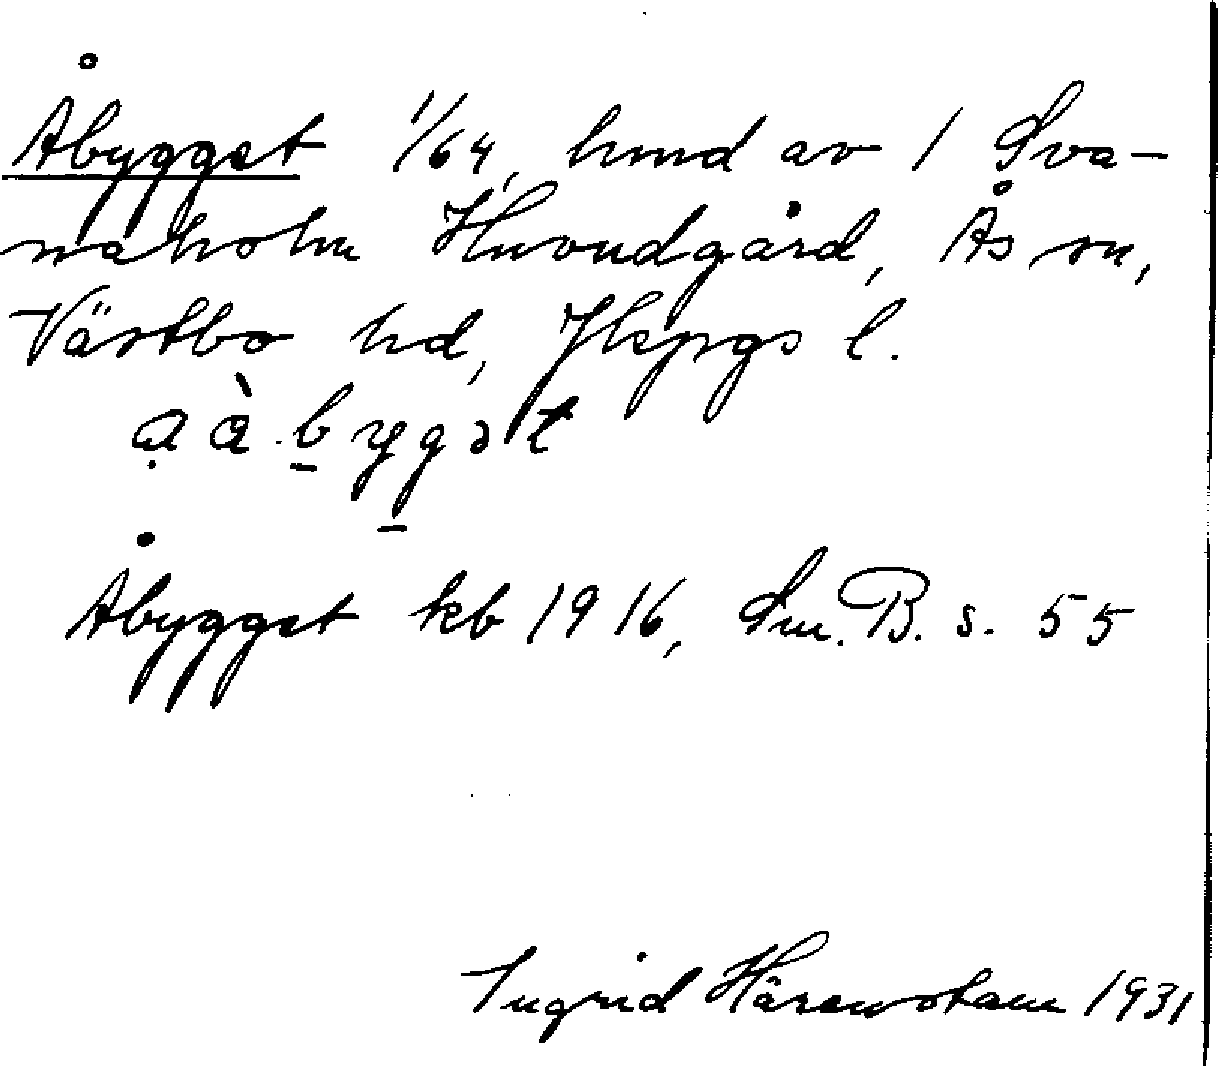 Åbygget 1/64, hmd av 1 Sva-
naholm Huvudgård, Ås sn,
Västbo hd, Jkpgs l.
ạ à b̲ y g̲ ə t
Åbygget kb 1916, Sm. B. s. 55
Ingrid 1931